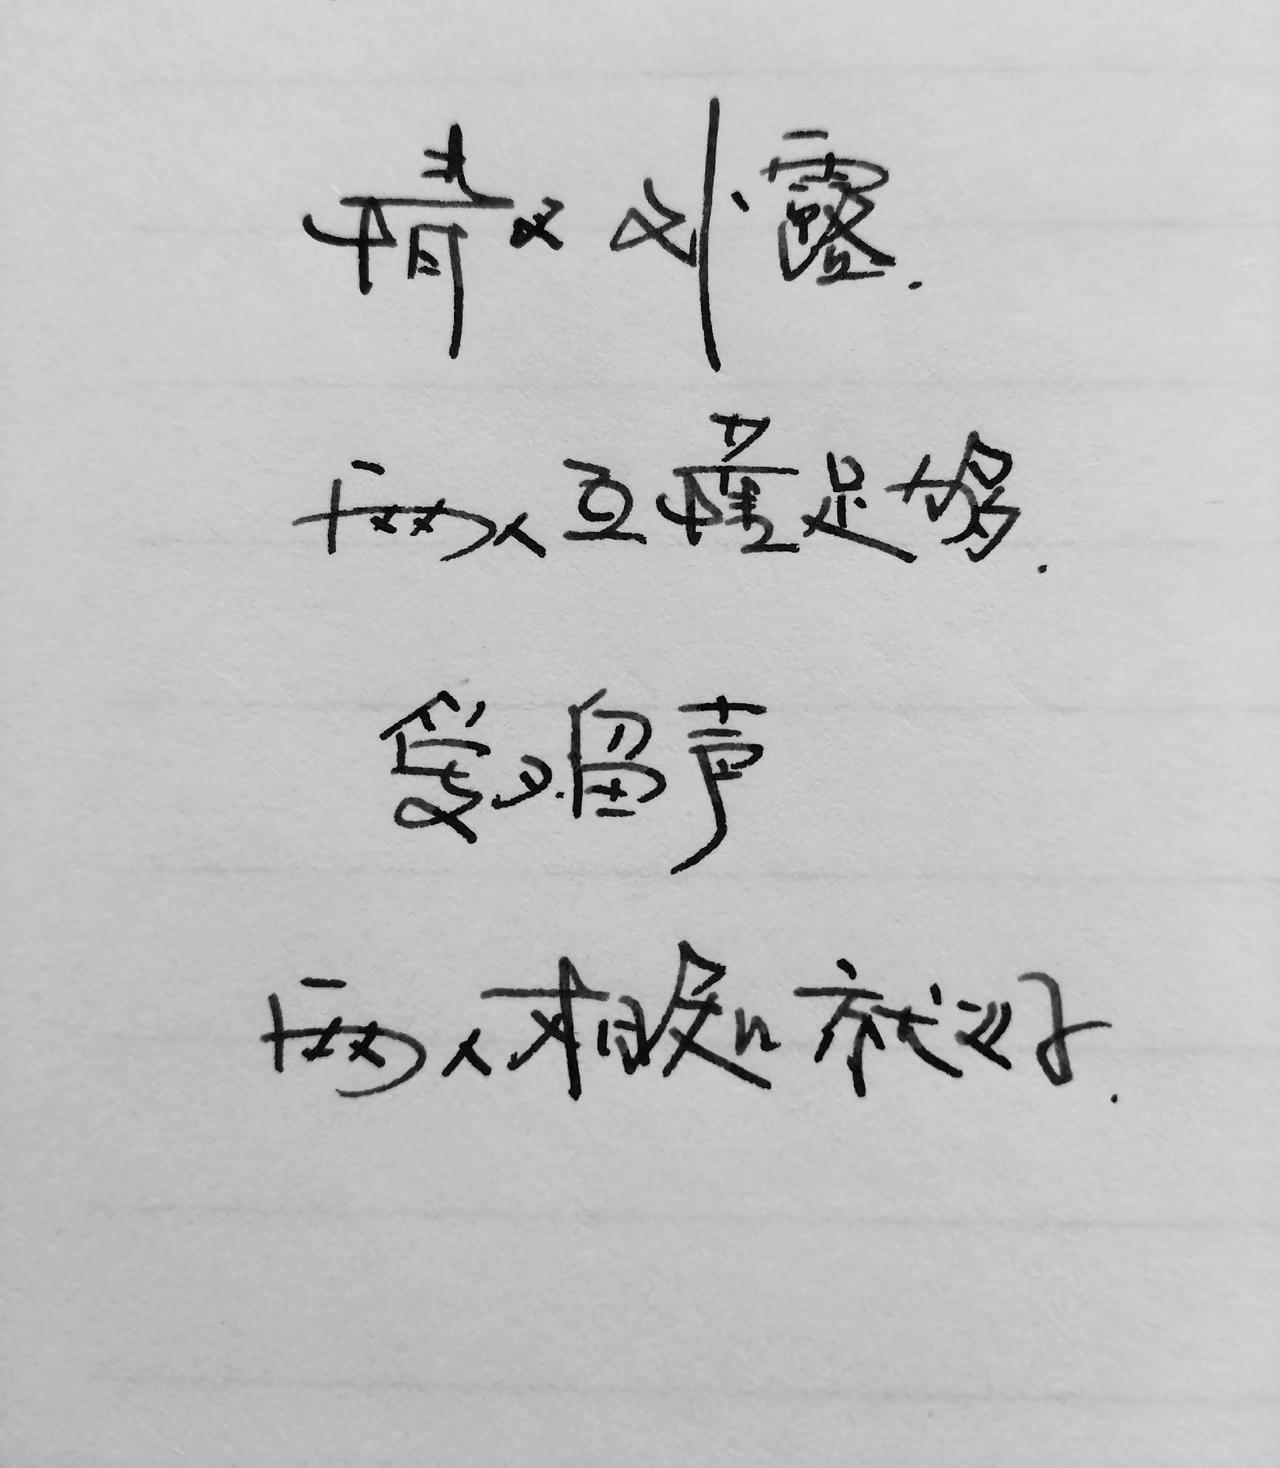 情不必外露.
两人互懂足够.
爱不.留声
两人相处就好.